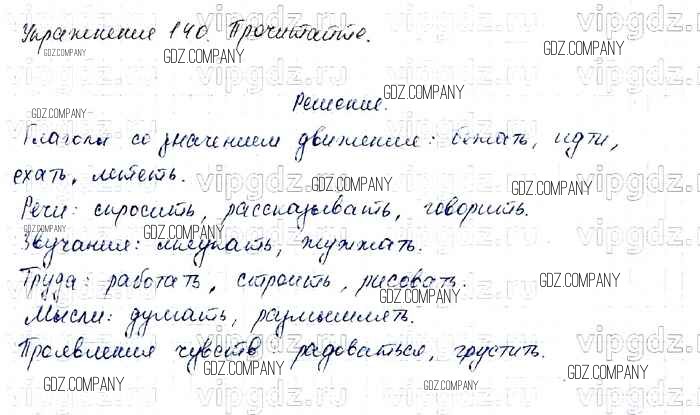 Упражнение 140. Прочитайте.
Решение.
Глаголы со значением движения: бежать, идти,
ехать, лететь.
Речи: спросить, рассказывать, говорить.
Звучания: мяукать, жужжать.
Труда: работать, строить, рисовать.
Мысли: думать, размышлять.
Проявления чувств: радоваться, грустить.
vipgdz.ru
GDZ.COMPANY